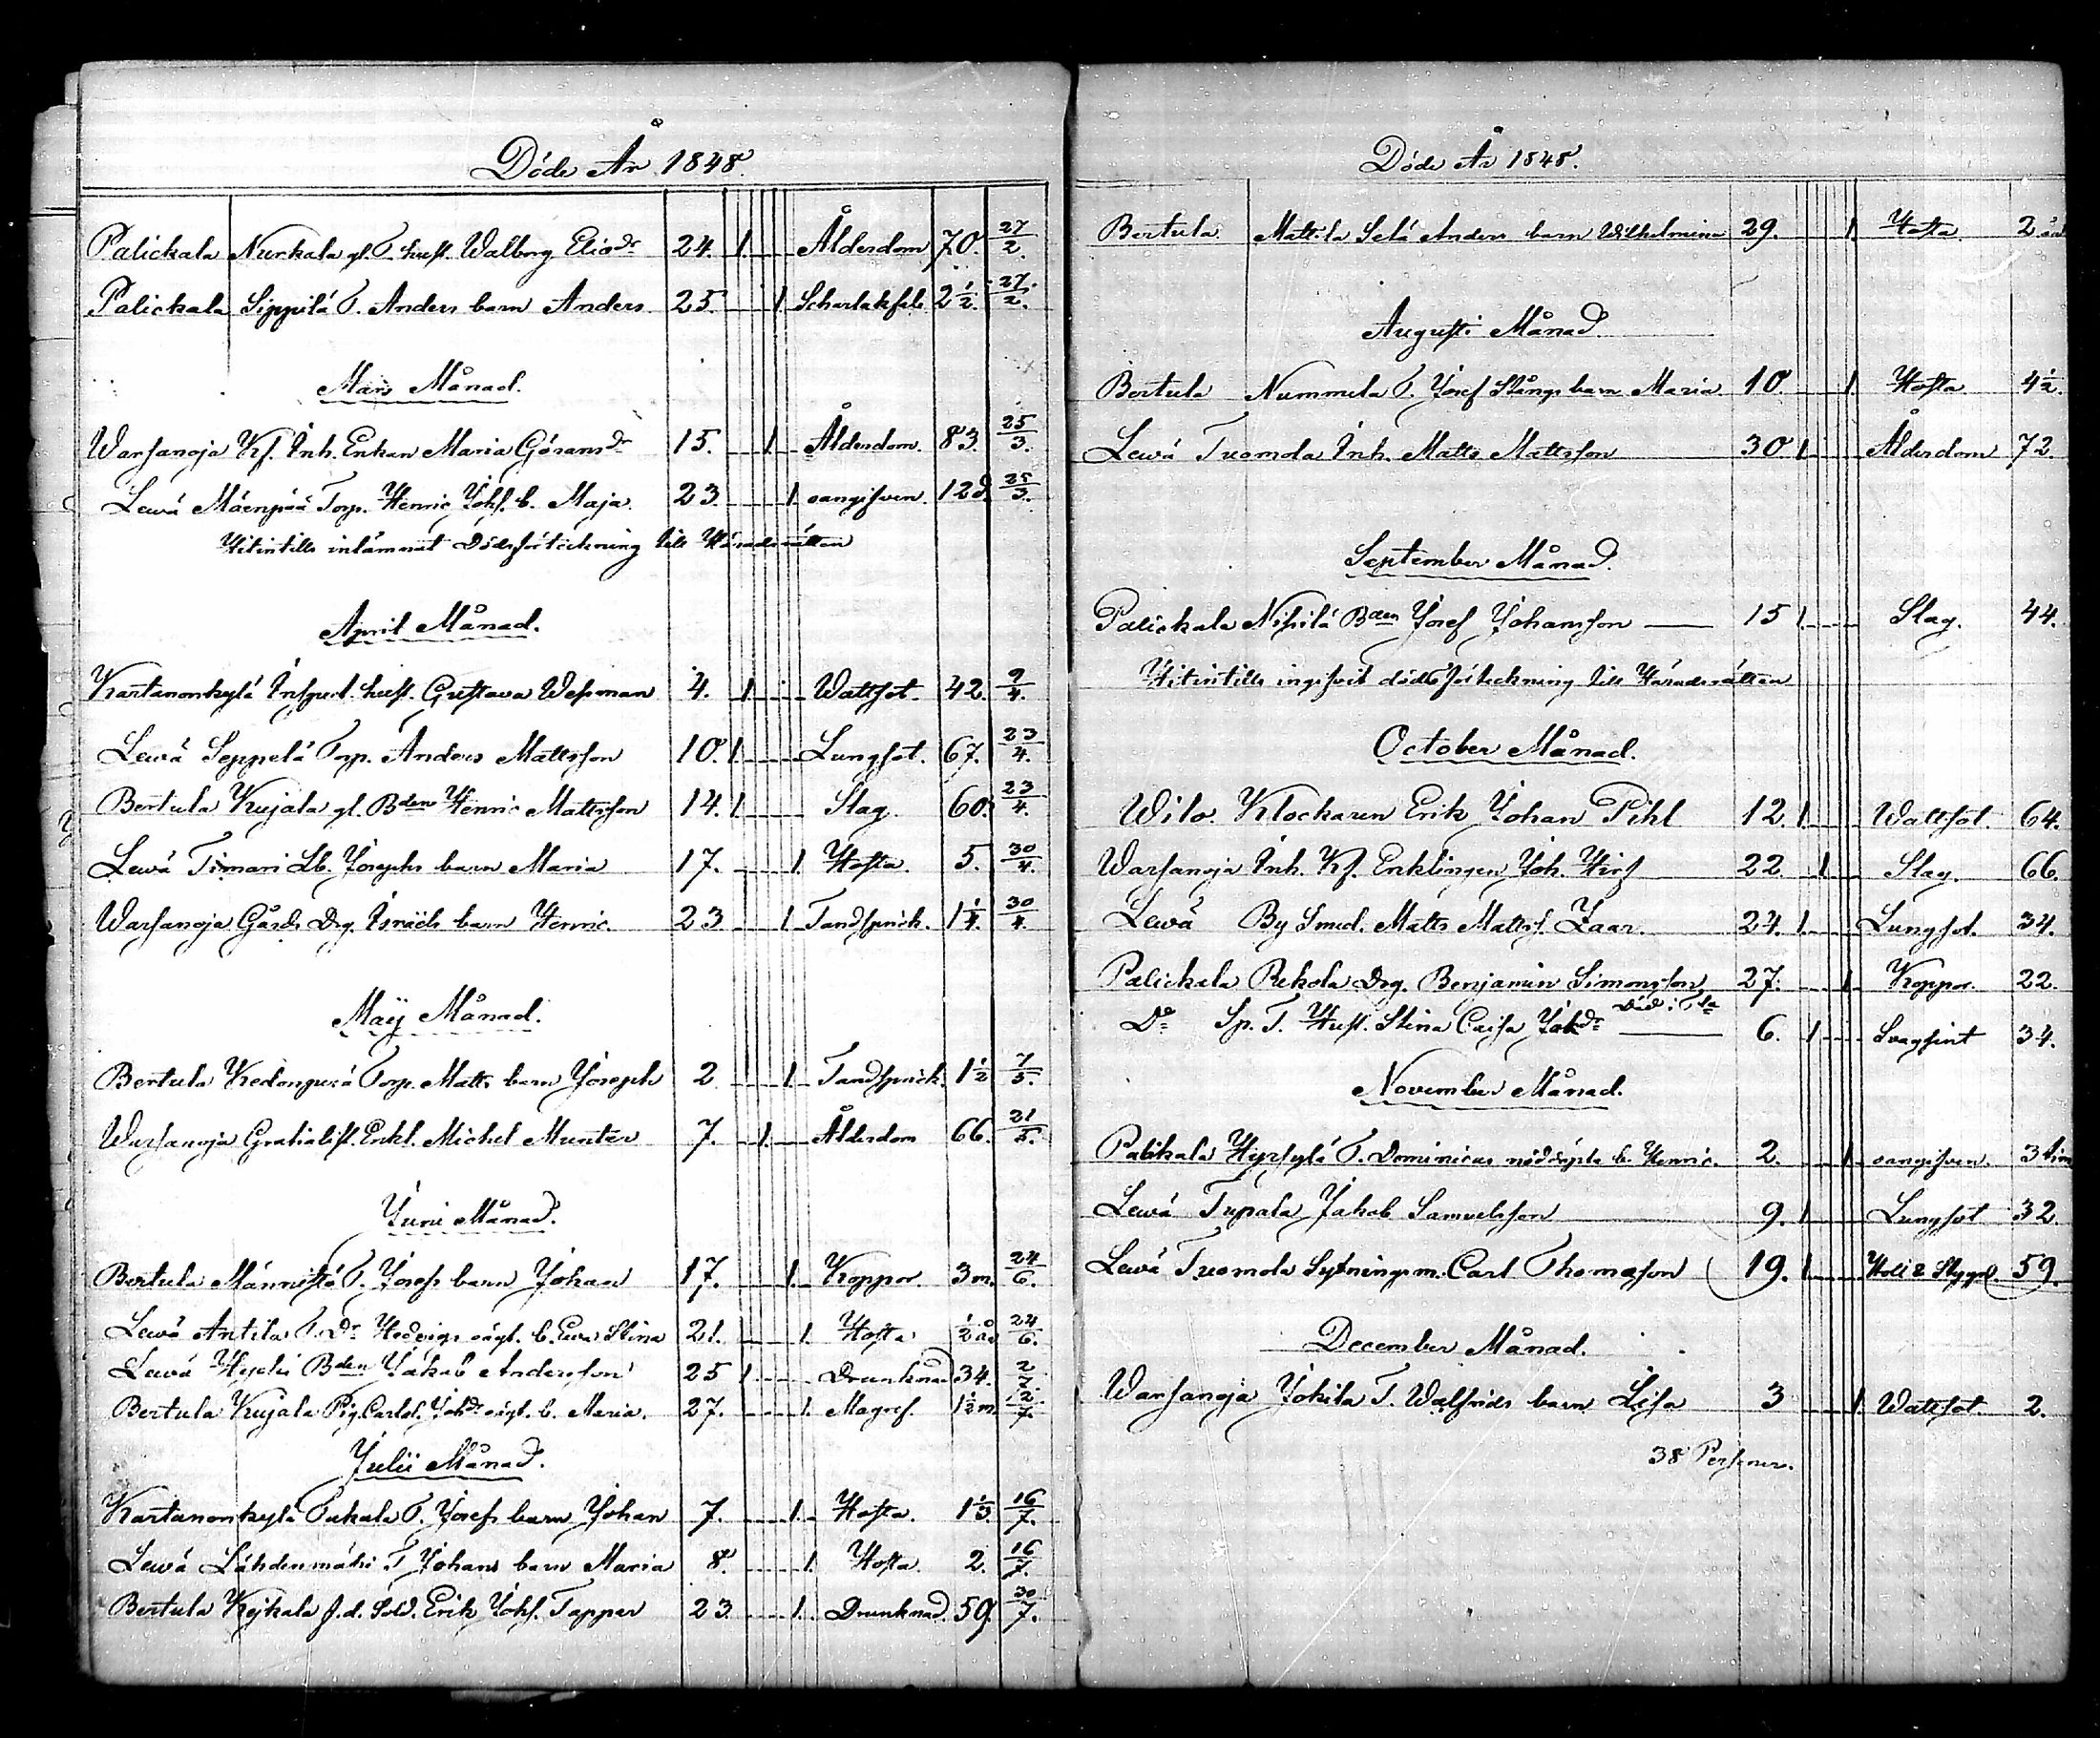 Döde År 1848.
Palickala Nurkala gl. T. hust. Walborg Eliædr 24. 1. Ålderdom 70. 27/2.
Palickala Sippilä T. Anders barn Anders 25. 1. Scharlakfeb. 2 1/2. 27/2.
Mars Månad.
Warsanoja Kf. Inh. Enkan Maria Göransdr 15. 1 Ålderdom. 83. 25/3.
Lewä Mäenpää Torp. Henric Johs. b. Maja. 23 1. oangifven. 12 d. 25/3.
Hitintills inlämnat Dödsförteckning till Häradsrätten
April Månad.
Kartanonkylä Inspect. hust. Gustava Wesman 4. 1 Wattsot 42. 9/4.
Lewä Seppelä Torp. Anders Mattsson 10. 1. Lungsot. 67. 23/4.
Bertula Kujala gl. Bden Henric Mattsson 14. 1. Slag. 60. 23/4.
Lewä Timari Lb. Josephs barn Maria 17. 1. Hosta. 5. 30/4.
Warsanoja Gårds Drg. Israels barn Henric. 23 1. Tandsprick. 1 1/4. 30/4.
Maij Månad.
Bertula Kedonperä Torp. Matts barn Joseph 2 1. Tandsprick. 1 1/2 7/5.
Warsanoja Gratialist. Enkl. Michel Munter 7. 1. Ålderdom 66. 21/5.
Juni Månad.
Bertula Männistö T. Josefs barn Johan 17. 1. Koppor. 3 m. 24/6.
Lewä Antila T. Dr Hedvigs oägt. b. Eva Stina 21. 1. Hosta 1/2 år 24/6.
Lewä Bden Jakob Andersson 25 1. Drunknad 34. 2/7
Bertula Kujala Pig. Carlol. Johdr oägt. b. Maria. 27. 1. Magref. 1 1/2 m. 2/7.
Julii Månad.
Kartanonkylä Pukala T. Josefs barn Johan 7. 1. Hosta. 1 1/3. 16/7.
Lewä Lähdenmäki T Johans barn Maria 8. 1. Hosta. 2. 16/7.
Bertula Kojkala f.d. Sold. Erik Johs. Tapper 23. 1. Drunknad. 59. 30/7.
Döde År 1848.
Bertula Mattila Selä Anders barn Wilhelmina 29. 1. Hosta 2 år
Augusti Månad
Bertula Nummela T. Josef Stångs barn Maria. 10. 1. Hosta 4 1/2.
Lewä Tuomola Inh. Matts Mattsson 30 1. Ålderdom 72.
September Månad.
Palickala Nihilä Bden Josef Johansson 15 1. Slag. 44.
Hitintills ingifvit dödsförteckning till Häradsrätten
October Månad.
Wilo. Klockaren Erik Johan Pihl 12. 1. Wattsot. 64.
Warsanoja Inh. Kf. Enklingen Joh. Hirf 22. 1 Slag. 66.
Lewä By Smed. Matts Mattss. Zaar. 24. 1. Lungsot. 34.
Palickala Rekola Drg. Benjamin Simonsson 27. 1 Koppor. 22.
Do Sp. T. Hust. Stina Caisa Johdr 6. 1 Svagsint 34.
November Månad.
Palikala Hyrsylä T. Dominicus nöddöpta b. Henric. 2. 1 oangifven. 3 tim
Lewä Tupala Jakob Samuelsson 9. 1. Lungsot 32.
Lewä Tuomola Sytningsm. Carl Thomasson 19. 1. Håll & Stygn. 59.
December Månad.
Warsanoja Jokila T. Walfrids barn Lisa 3 1. Wattsot. 2.
38 Personer.